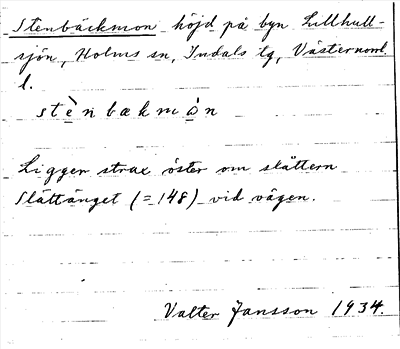 Stenbäckmon höjd på byn Lillhull-
sjön, Holms sn, Indals tg, Västernorrl.
l.
stὲnbækmὰn
Ligger strax öster om slåttern
Slåttänget (=148) vid vägen.
Valter Jansson 1934.